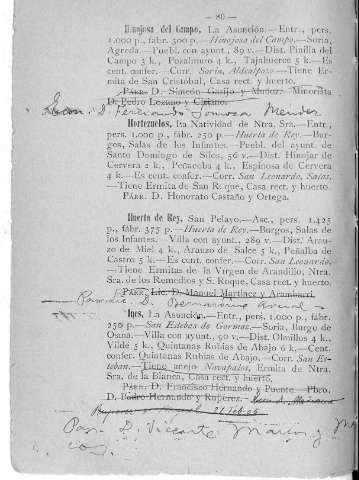 — 80 —
Hinojosa del Campo, La Asunción.—Entr., pers.
1.000 p., fábr. 300 p.—Hinojosa del Campo.—Soria,
Agreda.—Puebl. con ayunt., 89 v.—Dist. Pinilla del
Campo 3 k., Pozalmuro 4 k., Tajahuerce 5 k.—Es
cent. confer.—Corr. Soria, Aldealpozo—Tiene Er-
mita de San Cristóbal, Casa rect. y huerto.
PÁRR. D. Simeón Garijo y Muñoz. Minorista
D. Pedro Lozano y Cipriano.
D. Fernando Somoza Méndez
Hortezuelos, La Natividad de Ntra. Sra.—Entr.,
pers. 1.000 p., fábr. 250 p.—Huerta de Rey.—Bur-
gos, Salas de los Infantes.—Puebl. del ayunt. de
Santo Domingo de Silos, 56 v.—Dist. Hinojar de
Cervera 2 k., Peñacoba 4 k., Espinosa de Cervera
4 k.—Es cent. confer.—Corr. San Leonardo, Salas,
—Tiene Ermita de San Roque, Casa rect. y huerto.
PÁRR. D. Honorato Castaño y Ortega.
Huerta de Rey, San Pelayo.—Asc., pers. 1.425
p., fábr. 375 p.—Huerta de Rey.—Burgos, Salas de
los Infantes.—Villa con ayunt., 289 v.—Dist. Arau-
zo de Miel 4 k., Arauzo de Salce 5 k., Peñalba de
Castro 5 k.—Es cent. confer.—Corr. San Leonardo,
—Tiene Ermitas de la Virgen de Arandillo, Ntra.
Sra. de los Remedios y S. Roque, Casa rect. y huerto.
PÁRR. Lic. D. Manuel Martínez y Aramburu.
D. Bernardino
Ines, La Asunción.—Entr., pers. 1.000 p., fábr.
250 p.—San Esteban de Gormaz.—Soria, Burgo de
Osma.—Villa con ayunt., 90 v.—Dist. Olmillos 4 k.,
Vilde 5 k., Quintanas Rubias de Abajo 6 k.—Cent.
confer. Quintanas Rubias de Abajo.—Corr. San Es-
teban.—Tiene anejo Navapalos, Ermita de Ntra.
Sra. de la Blanca, Casa rect. y huerto.
PÁRR. D. Francisco Hernando y Puente.—Pbro.
D. Pedro Hernando y Ruperez.
21 Feb.
Par. D. Vicente Marcos y